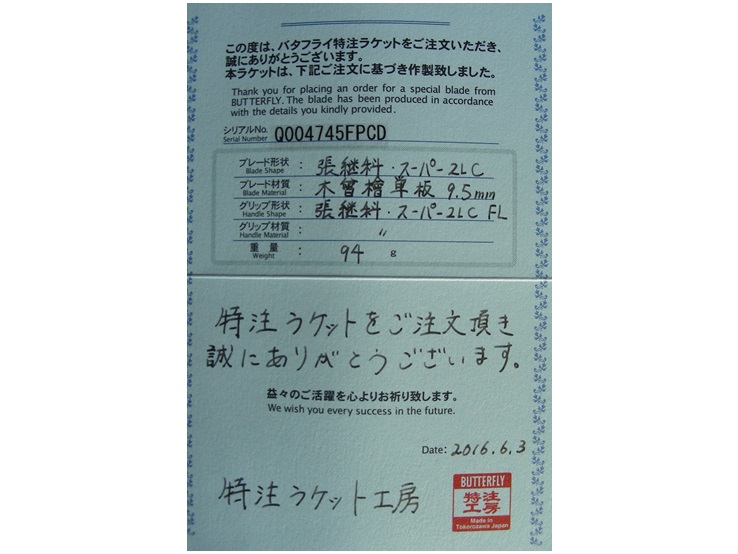 この度は、バタフライ特注ラケットをご注文いただき、
誠にありがとうございます。
本ラケットは、下記ご注文に基づき作製致しました。
Thank you for placing an order for a special blade from
BUTTERFLY. The blade has been produced in accordance
with the details you kindly provided.
シリアルNo.
Serial Number
Q004745FPCD
ブレード形状
Blade Shape
: 張継科・スーパーZLC
ブレード材質
Blade Material
: 木曽檜単板 9.5mm
グリップ形状
Handle Shape
: 張継科・スーパーZLC FL
グリップ材質
Handle Material
: 〃
重量
Weight
: 94 g
特注ラケットをご注文頂き
誠にありがとうございます。
益々のご活躍を心よりお祈り致します。
We wish you every success in the future.
Date: 2016.6.3
特注ラケット工房
BUTTERFLY
特注
工房
Made in
Tokorozawa Japan